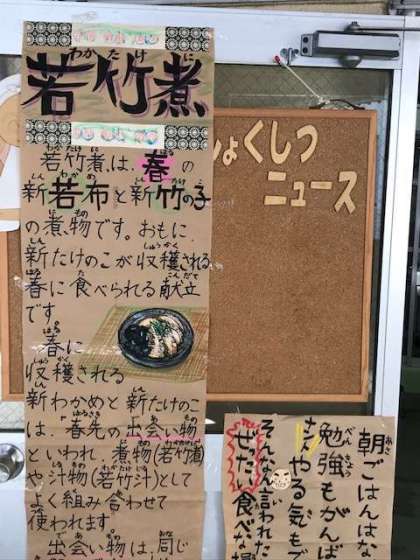 わかたけに
若竹煮
若竹煮は、春の
新若布と新竹の子
の煮物です。おもに
新たけのこが収穫される
春に食べられる献立
です。
春に
収穫される
新わかめと新たけのこ
は、春先の出会い物
といわれ、煮物(若竹煮)
や汁物(若竹汁)として
よく組み合わせて
使われます。
出会い物は、同じ
しょくしつ
ニュース
朝ごはんはな
勉強もがんば
やる気もで
そんなん言われた
ぜったい食べな